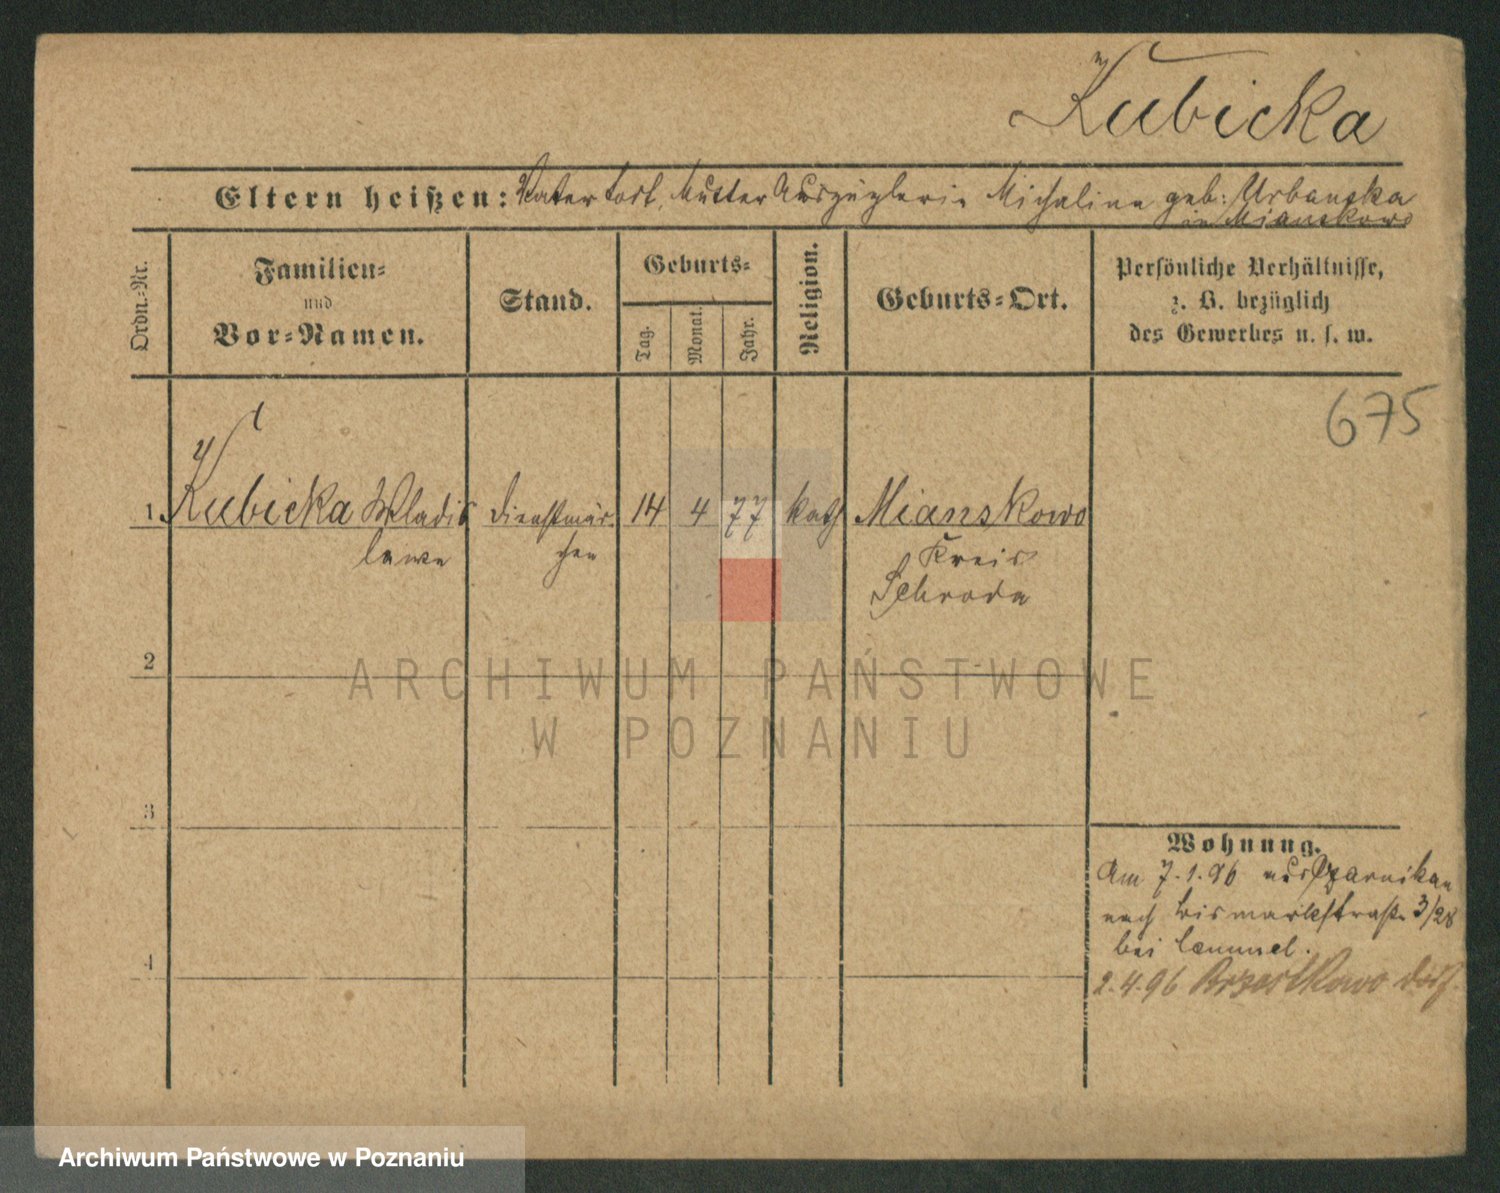 Kubicka
Eltern heißen: Vater todt, Mutter Auszüglerin Michalina geb: Urbanska
in Mianskowo
Ordn.-Nr.
Familien-
und
Vor-Namen.
Stand.
Geburts-
Tag.
Monat.
Jahr.
Religion.
Geburts-Ort.
Persönliche Verhältnisse,
z. B. bezüglich
des Gewerbes u. s. w.
675
1 Kubicka Wladis dienstmäd- 14 4 77 kath Mianskowo
lawa chen Kreis
Schroda
2
ARCHIWUM PAŃSTWOWE
W POZNANIU
3
Wohnung.
Am 7.1.96 aus Czarnikau
nach Bismarckstraße 3/28
bei
4
2.4.96
Archiwum Państwowe w Poznaniu